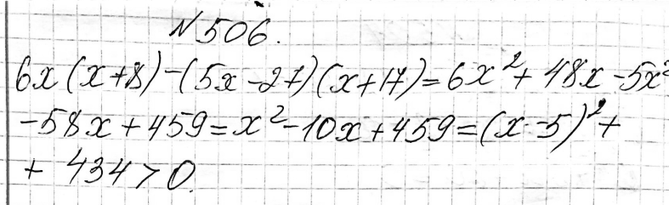 №506.
6x(x+8)-(5x-27)(x+17)=6x²+48x-5x²
-58x+459=x²-10x+459=(x-5)²+
+434>0.